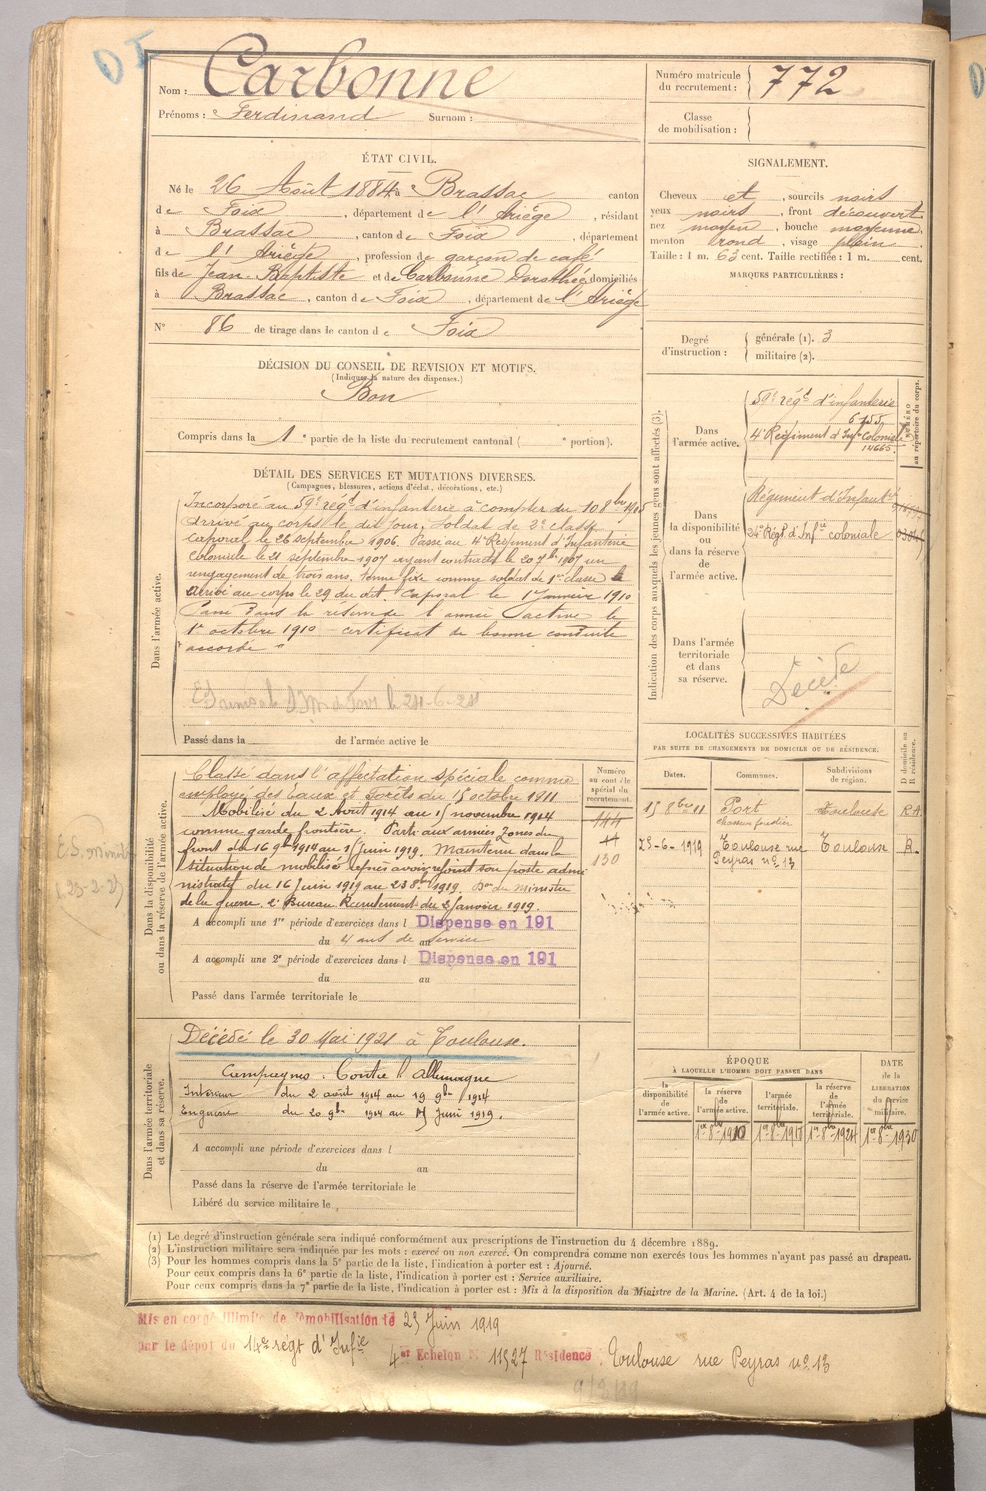 Nom : Carbonne
Prénoms : Ferdinand Surnom :
Numéro matricule du recrutement : 772
Classe de mobilisation :
ÉTAT CIVIL.
Né le 26 Août 1884 à Brassac canton
de Foix, département de l'Ariège, résidant
à Brassac, canton de Foix, département
de l'Ariège, profession de garçon de café
fils de Jean Baptiste et de Carbonne Dorothée domiciliés
à Brassac, canton de Foix, département de l'Ariège
N° 86 de tirage dans le canton de Foix
SIGNALEMENT.
Cheveux et, sourcils noirs
yeux noirs, front découvert
nez moyen, bouche moyenne,
menton rond, visage plein.
Taille : 1 m. 63 cent. Taille rectifiée : 1 m. cent.
MARQUES PARTICULIÈRES :
Degré d'instruction : générale (1). 3
militaire (2).
DÉCISION DU CONSEIL DE REVISION ET MOTIFS.
(Indiquer la nature des dispenses.)
Bon
Compris dans la 1e partie de la liste du recrutement cantonal ( e portion).
DÉTAIL DES SERVICES ET MUTATIONS DIVERSES.
(Campagnes, blessures, actions d'éclat, décorations, etc.)
Dans l'armée active.
Incorporé au 59e régt d'infanterie à compter du 10 8bre
arrivé au corps le dit jour, soldat de 2e classe
Caporal le 26 septembre 1906. Passé au 4e Régiment d'Infanterie
Coloniale le 21 septembre 1907 ayant contracté le 20 7bre 1907 un
rengagement de trois ans. tenue fixe comme soldat de 1re classe
Arrivé au corps le 29 du dit. Caporal le 1er Janvier 1910
Passé dans la réserve de l'armée active le
1er octobre 1910 - certificat de bonne conduite
accordé
Passé dans la de l'armée active le
Dans la disponibilité ou dans la réserve de l'armée active.
Classé dans l'affectation spéciale comme
employé des Eaux et Forêts du 15 octobre 1911
Mobilisé du 2 Août 1914 au 15 novembre 1914
comme garde frontière. Parti aux armées Zones du
front du 16 9bre 1914 au 15 juin 1919. Maintenu dans la
situation de mobilisé après avoir rejoint son poste admi
nistratif du 16 Juin 1919 au 23 8bre 1919. Don du Ministre
de la guerre. 2e Bureau Recrutement du 2 Janvier 1919.
A accompli une 1re période d'exercices dans l Dispense en 191
du 4 ans de service au
A accompli une 2e période d'exercices dans l Dispense en 191
du au
Passé dans l'armée territoriale le
Dans l'armée territoriale et dans sa réserve.
Décédé le 30 Mai 1921 à Toulouse.
Campagnes : Contre l'Allemagne
Intérieur du 2 août 1914 au 19 9bre 1914
du 20 9bre 1914 au 15 juin 1919.
A accompli une période d'exercices dans l
du au
Passé dans la réserve de l'armée territoriale le
Libéré du service militaire le
Numéro au contrôle spécial du recrutement.
144
130
Indication des corps auxquels les jeunes gens sont affectés (3).
NUMÉRO au répertoire du corps.
Dans l'armée active.
59e régt d'infanterie
6755
4e Régiment d'Infie Coloniale
14665
Dans la disponibilité ou dans la réserve de l'armée active.
Régiment d'Infant
24e Régt d'Infie coloniale
Dans l'armée territoriale et dans sa réserve.
Décédé
LOCALITÉS SUCCESSIVES HABITÉES
PAR SUITE DE CHANGEMENTS DE DOMICILE OU DE RÉSIDENCE.
Dates. Communes. Subdivisions de région. D domicile ou R résidence.
15 8bre 11 Port Toulouse R
25-6-1919 Toulouse rue Peyras n° 13 Toulouse R.
ÉPOQUE
À LAQUELLE L'HOMME DOIT PASSER DANS
la disponibilité de l'armée active.
la réserve de l'armée active.
l'armée territoriale.
la réserve de l'armée territoriale.
DATE de la LIBÉRATION du service militaire.
1er 8bre 1910 1er 8bre 1918 1er 8bre 1924 1er 8bre 1930
(1) Le degré d'instruction générale sera indiqué conformément aux prescriptions de l'instruction du 4 décembre 1889.
(2) L'instruction militaire sera indiquée par les mots : exercé ou non exercé. On comprendra comme non exercés tous les hommes n'ayant pas passé au drapeau.
(3) Pour les hommes compris dans la 5e partie de la liste, l'indication à porter est : Ajourné.
Pour ceux compris dans la 6e partie de la liste, l'indication à porter est : Service auxiliaire.
Pour ceux compris dans la 7e partie de la liste, l'indication à porter est : Mis à la disposition du Ministre de la Marine. (Art. 4 de la loi.)
Mis en congé illimité de démobilisation le 25 Juin 1919
par le dépôt du 14e régt d'Infie
4e Echelon N° 11527 Résidence : Toulouse rue Peyras n° 13